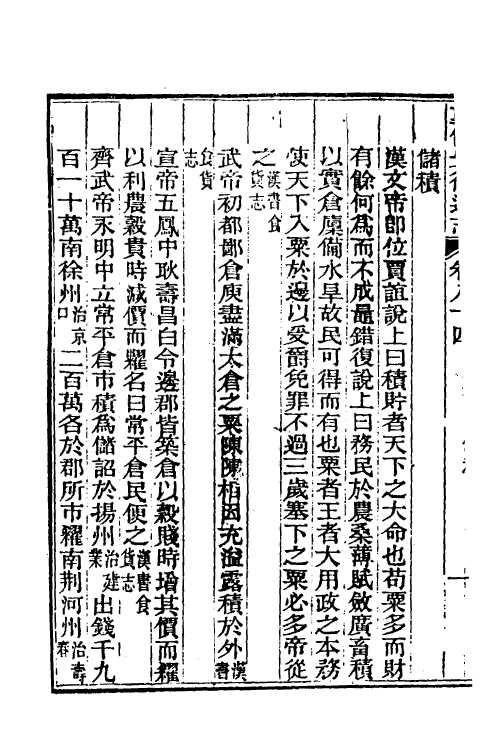 儲積
漢文帝即位賈誼說上曰積貯者天下之大命也苟粟多而財
有餘何為而不成晁錯復說上曰務民於農桑薄賦斂廣畜積
以實倉廩備水旱故民可得而有也粟者王者大用政之本務
使天下入粟於邊以受爵免罪不過三歲塞下之粟必多帝從
之漢書食貨志
武帝初都鄙倉庾盡滿太倉之粟陳陳相因充溢露積於外漢書
食貨志
宣帝五鳳中耿壽昌白令邊郡皆築倉以穀賤時增其價而糴
以利農穀貴時減價而糶名曰常平倉民便之漢書食貨志
齊武帝永明中立常平倉市積為儲詔於揚州治建業出錢千九
百一十萬南徐州治京口二百萬各於郡所市糴南荆河州治壽春